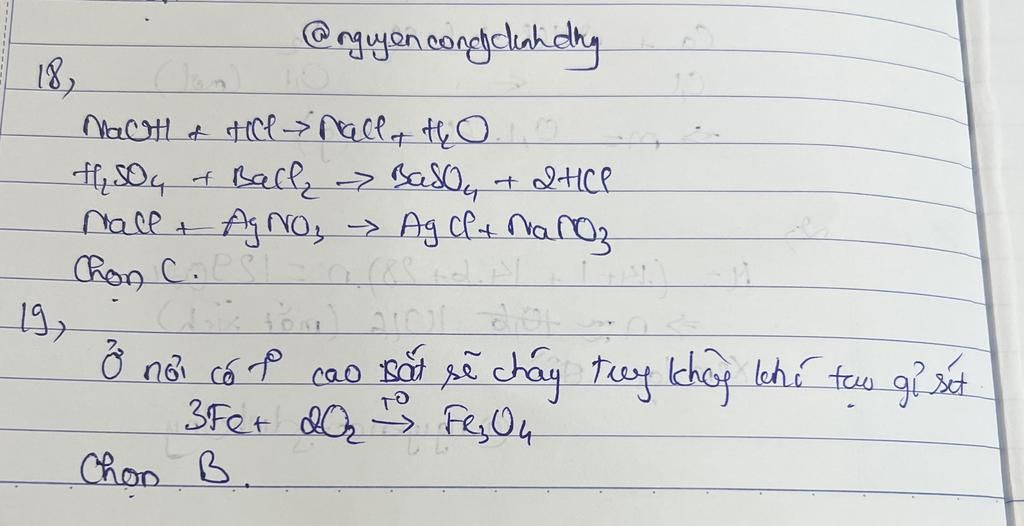 @nguyencongdinhdng
18,
NaOH + HCl → NaCl + H₂O
H₂SO₄ + BaCl₂ → BaSO₄ + 2HCl
NaCl + AgNO₃ → AgCl + NaNO₃
Chọn C.
19,
Ở nơi có t° cao sắt sẽ cháy trong không khí tạo gỉ sét
3Fe + 2O₂ →(T°) Fe₃O₄
Chọn B.